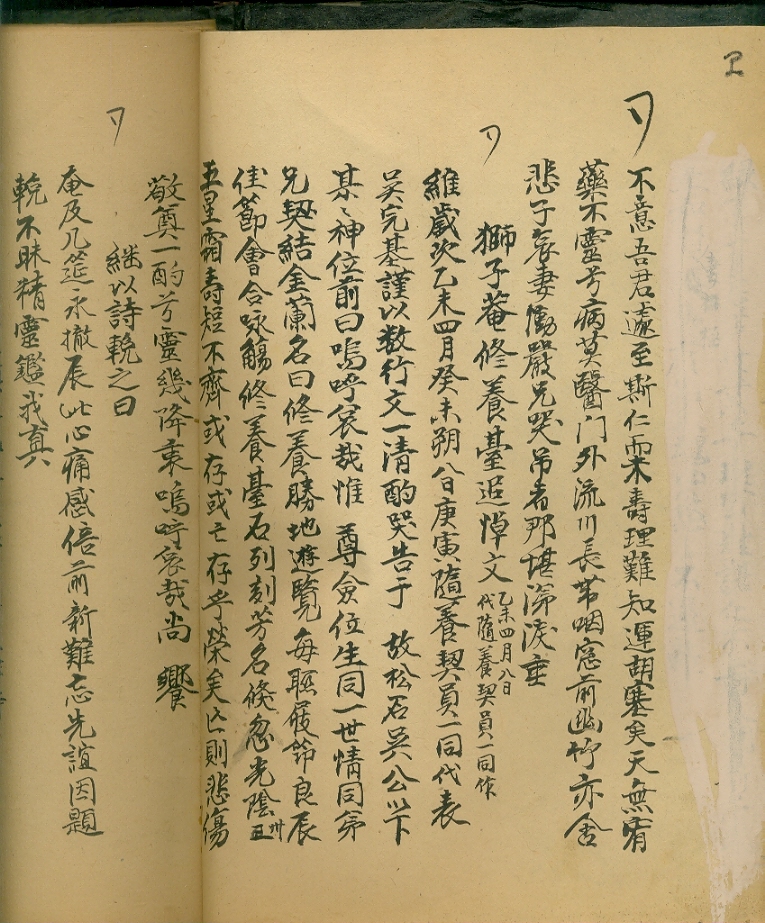 不意吾君遽至斯仁而未壽理難知運胡蹇矣天無宥
藥不靈兮病莫醫門外流川長帶咽窓前幽竹亦含
悲子哀妻慟嚴兄哭吊者那堪涕淚垂
獅子菴修養臺追悼文 乙未四月八日
代隨養契員一同作
維歲次乙未四月癸未朔八日庚寅隨養契員一同代表
吳完基謹以數行文一清酌哭告于 故松石吳公以下
某〻神位前曰嗚呼哀哉惟 尊僉位生同一世情同弟
兄契結金蘭名曰修養勝地遊覽每聯屐節良辰
佳節會合咏觴修養臺石列刻芳名倏忽光陰卅五
五星霜壽短不齊或存或亡存乎榮矣亡則悲傷
敬奠一酌兮靈幾降衷嗚呼哀哉尚 饗
繼以詩輓之曰
奄及几筵永撤辰此心痛感倍前新難忘先誼因題
輓不昧精靈鑑我眞